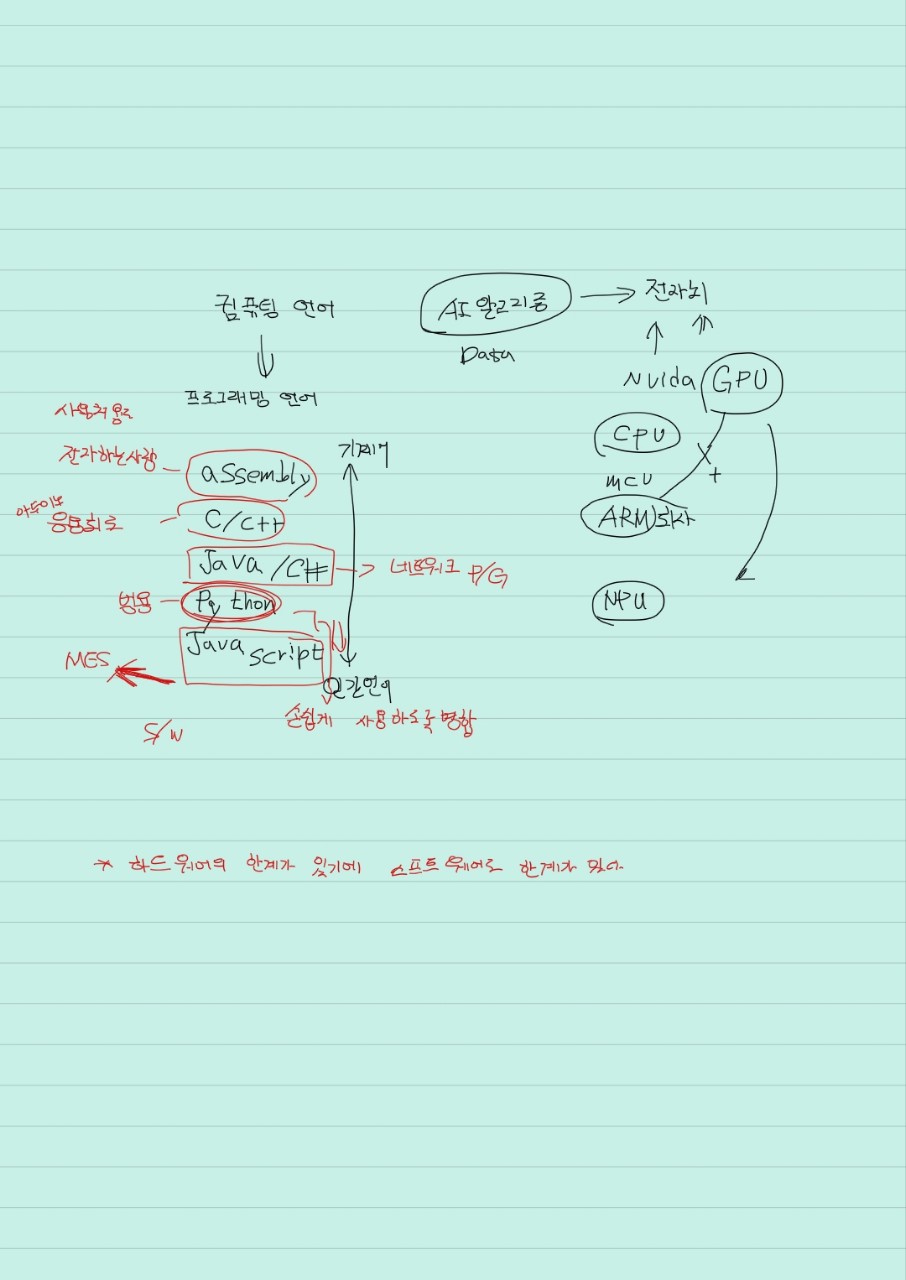 컴퓨팅 언어
프로그래밍 언어
사용처 용도
전자하는사람
assembly
기계어
아두이노
응용회로
C/C++
Java/C#
네트워크 P/G
범용
Python
Java script
MES
인간언어
손쉽게 사용하도록 변함
S/W
AI 알고리즘
전자뇌
Data
Nvida GPU
CPU
mcu
+
ARM회사
NPU
* 하드웨어의 한계가 있기에 소프트웨어도 한계가 있다